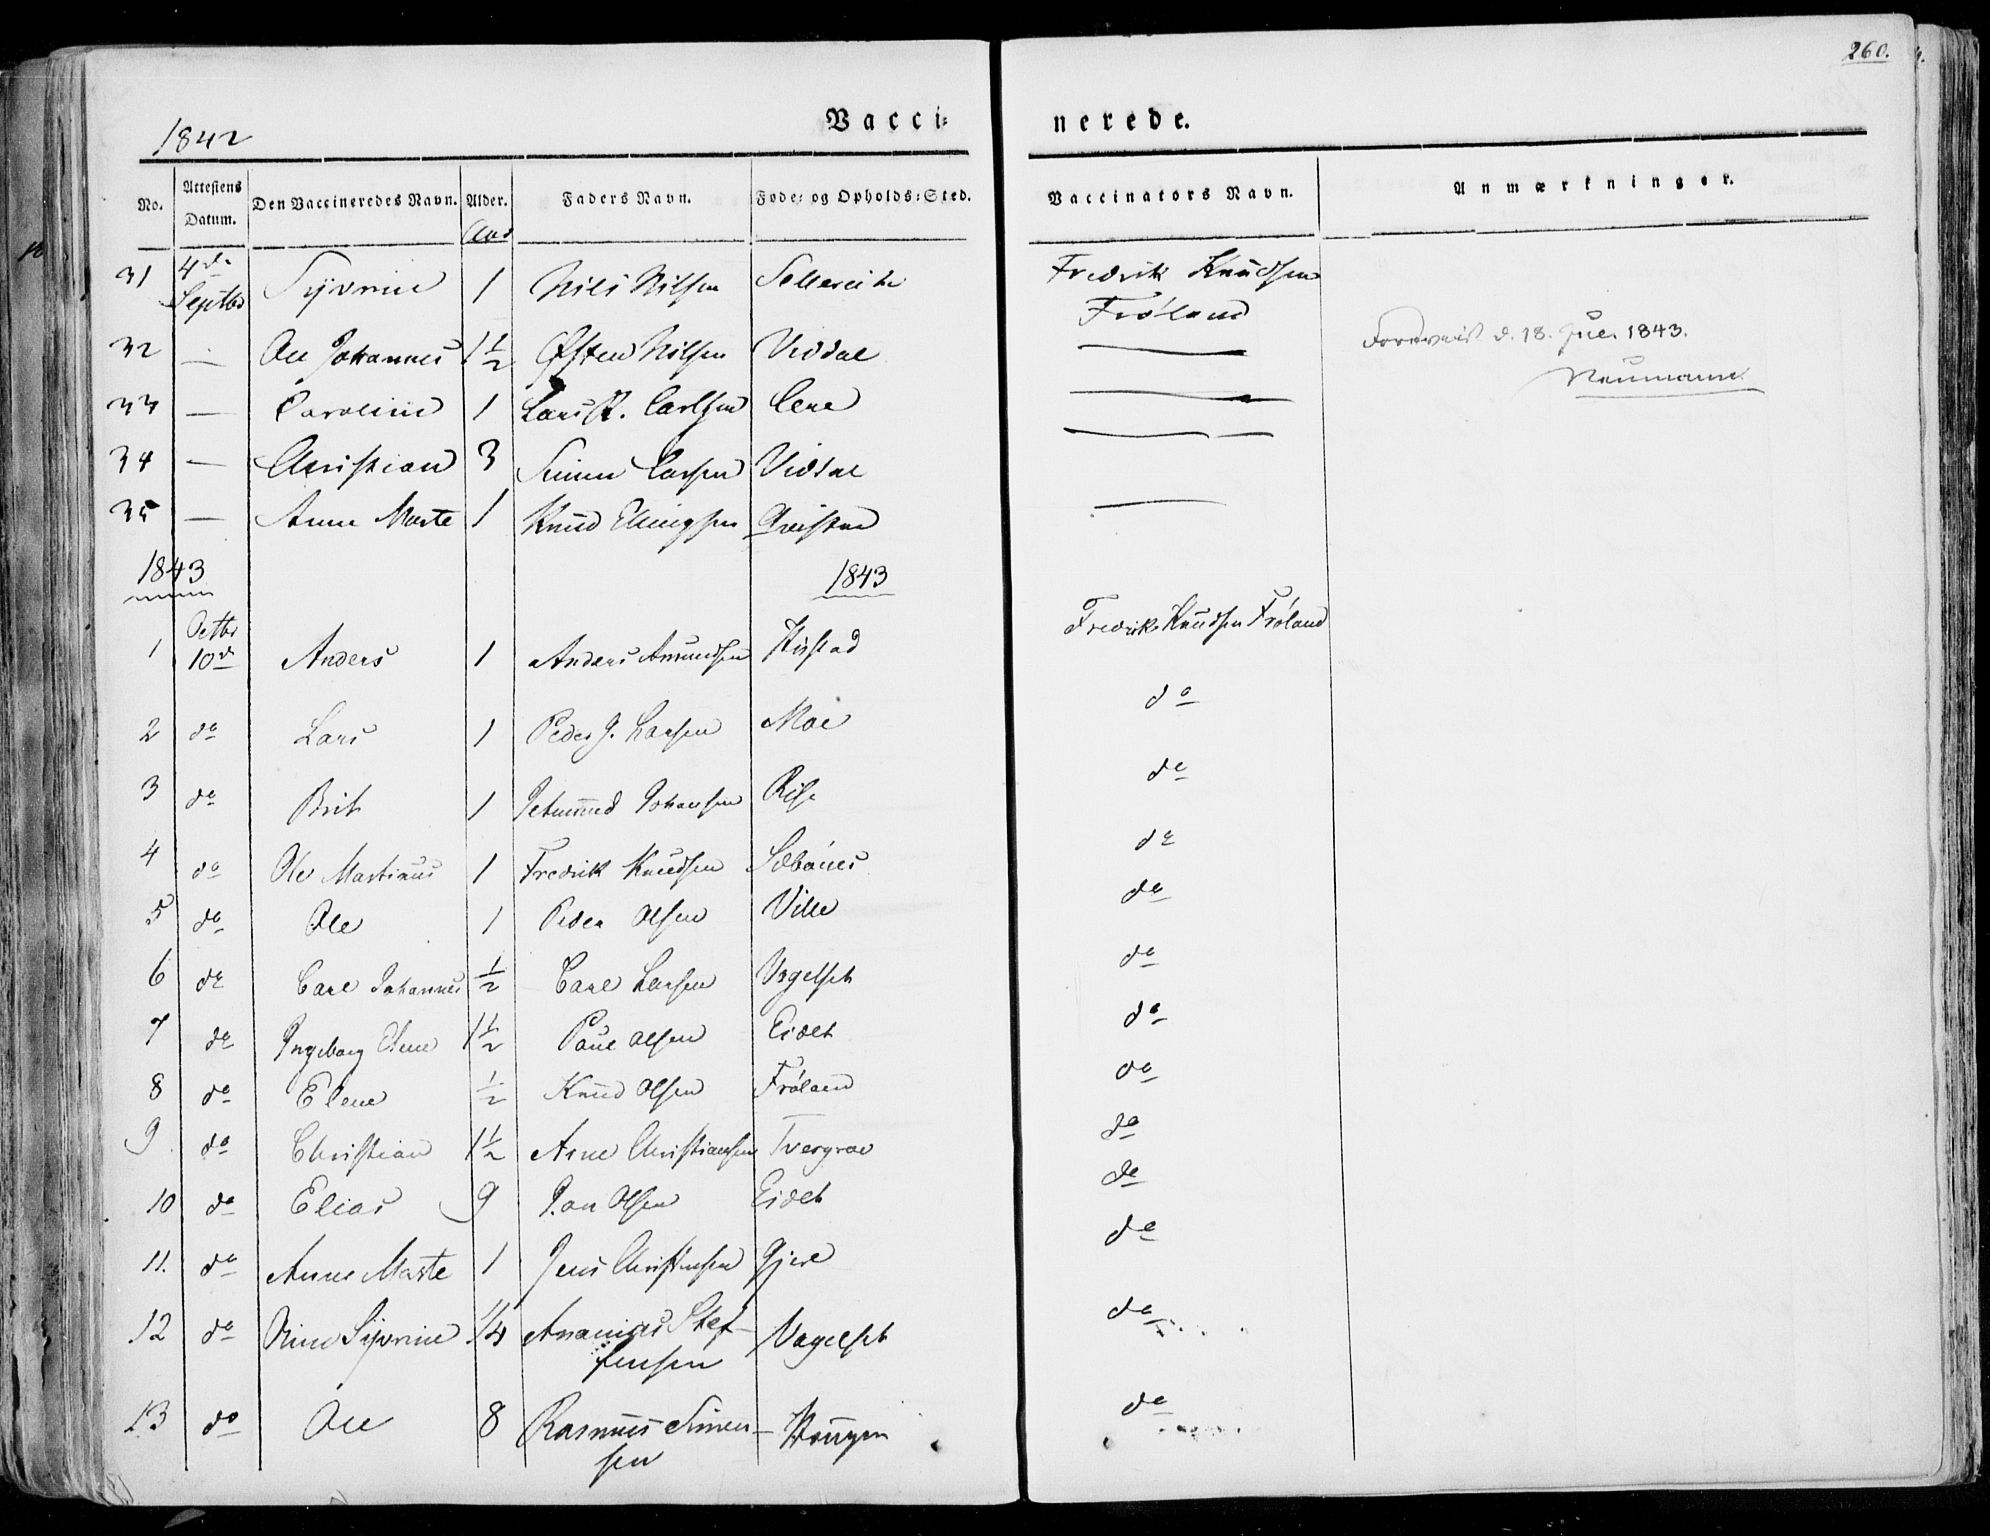 260.
1842
Vacci=
nerede.
No. Attestens Datum. Den Vaccineredes Navn. Alder. Faders Navn. Føde- og Opholds-Sted. Vaccinators Navn. Anmærkninger.
31 4de Septbr Syvrine 1 Nils Nilsen Fredrik Knudsen Frøland
32 — Ole Johannes 1½ Østen Nilsen Viddal —
Foreviist d. 18. Jul. 1843.
Neumann
33 — Caroline 1 Lars R. Carlsen —
34 — Christian 3 Simen Larsen Viddal —
35 — Anne Marte 1 Knud Ellingsen —
1843 1843
1 Octbr 10de Anders 1 Anders Amundsen Fredrik Knudsen Frøland
2 do Lars 1 Peder J. Larsen Moe do
3 do Brit 1 Johansen Rise do
4 do Ole Martinus 1 Fredrik Knudsen Sæbønes do
5 do Ole 1 Peder Olsen Ville do
6 do Carl Johannes ½ Carl Larsen Vagelset do
7 do Ingeborg Oline 1½ Paul Olsen Eidet do
8 do Elene ½ Knud Olsen Frøland do
9 do Christian 1½ Arne Christiansen Tvergrov do
10 do Elias 9 Jon Olsen Eidet do
11. do Anne Marte 1 Jens Christensen Gjere do
12 do Syvrine 1/4 Ananias Stef-
fensen Vagelset do
13 do Ole 8 Rasmus Simen-
sen Hougen do